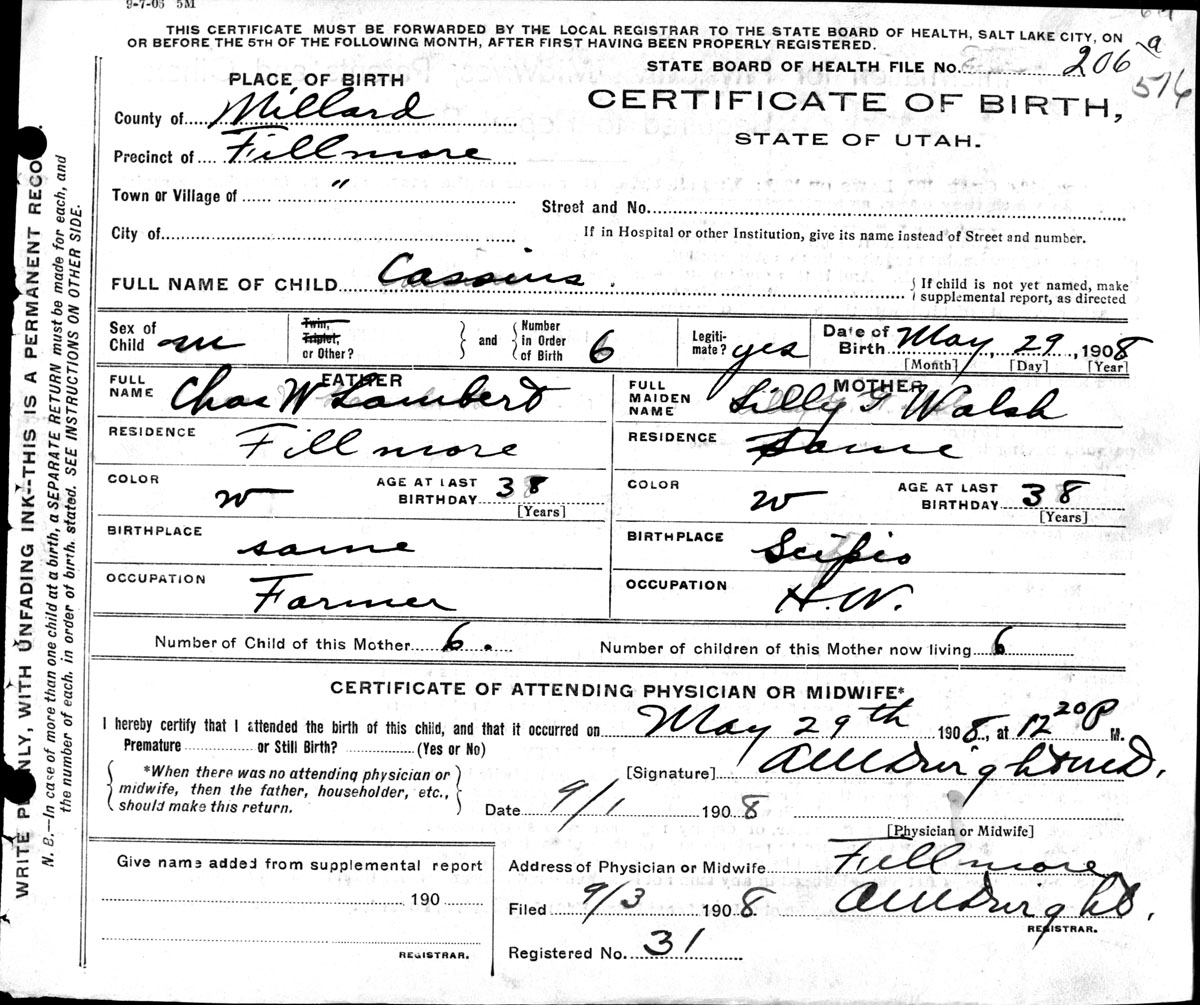 9-7-06 5M
THIS CERTIFICATE MUST BE FORWARDED BY THE LOCAL REGISTRAR TO THE STATE BOARD OF HEALTH, SALT LAKE CITY, ON
OR BEFORE THE 5TH OF THE FOLLOWING MONTH, AFTER FIRST HAVING BEEN PROPERLY REGISTERED.
STATE BOARD OF HEALTH FILE No. 206 a
516
PLACE OF BIRTH
CERTIFICATE OF BIRTH,
STATE OF UTAH.
County of Millard
Precinct of Fillmore
Town or Village of "
Street and No.
City of
If in Hospital or other Institution, give its name instead of Street and number.
FULL NAME OF CHILD Cassius
If child is not yet named, make
supplemental report, as directed
Sex of Child m Twin, Triplet, or Other? and Number in Order of Birth 6 Legiti-mate? yes Date of Birth May 29, 1908
[Month] [Day] [Year]
FATHER MOTHER
FULL NAME Chas W Lambert FULL MAIDEN NAME Lilly G Walsh
RESIDENCE Fillmore RESIDENCE Same
COLOR W AGE AT LAST BIRTHDAY 38 [Years] COLOR W AGE AT LAST BIRTHDAY 38 [Years]
BIRTHPLACE same BIRTHPLACE Scipio
OCCUPATION Farmer OCCUPATION H.W.
Number of Child of this Mother 6. Number of children of this Mother now living 6
CERTIFICATE OF ATTENDING PHYSICIAN OR MIDWIFE*
I hereby certify that I attended the birth of this child, and that it occurred on May 29th 1908, at 12 20 P M.
Premature or Still Birth? (Yes or No)
*When there was no attending physician or
midwife, then the father, householder, etc.,
should make this return.
[Signature] M.D.
Date 9/1 1908
[Physician or Midwife]
Give name added from supplemental report
190
REGISTRAR.
Address of Physician or Midwife Fillmore
Filed 9/3 1908
REGISTRAR.
Registered No. 31
WRITE PLAINLY, WITH UNFADING INK--THIS IS A PERMANENT RECO
N. B.—In case of more than one child at a birth, a SEPARATE RETURN must be made for each, and
the number of each, in order of birth, stated. SEE INSTRUCTIONS ON OTHER SIDE.